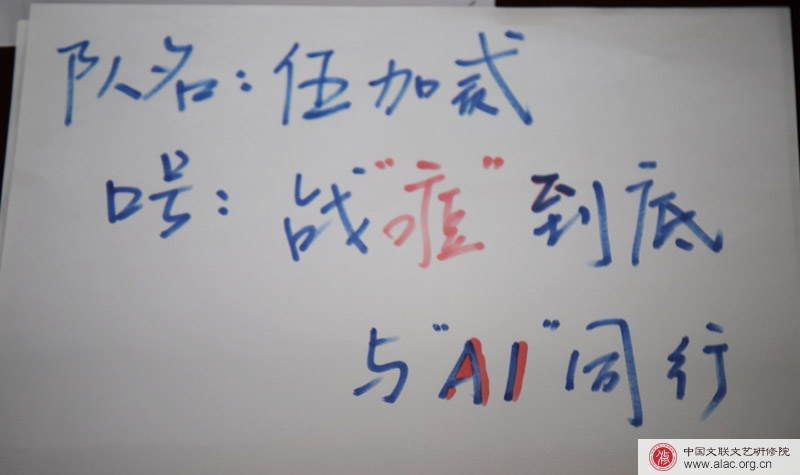 队名：伍加贰
口号：战“痘”到底
与“AI”同行
中国文联文艺研修院
www.alac.org.cn